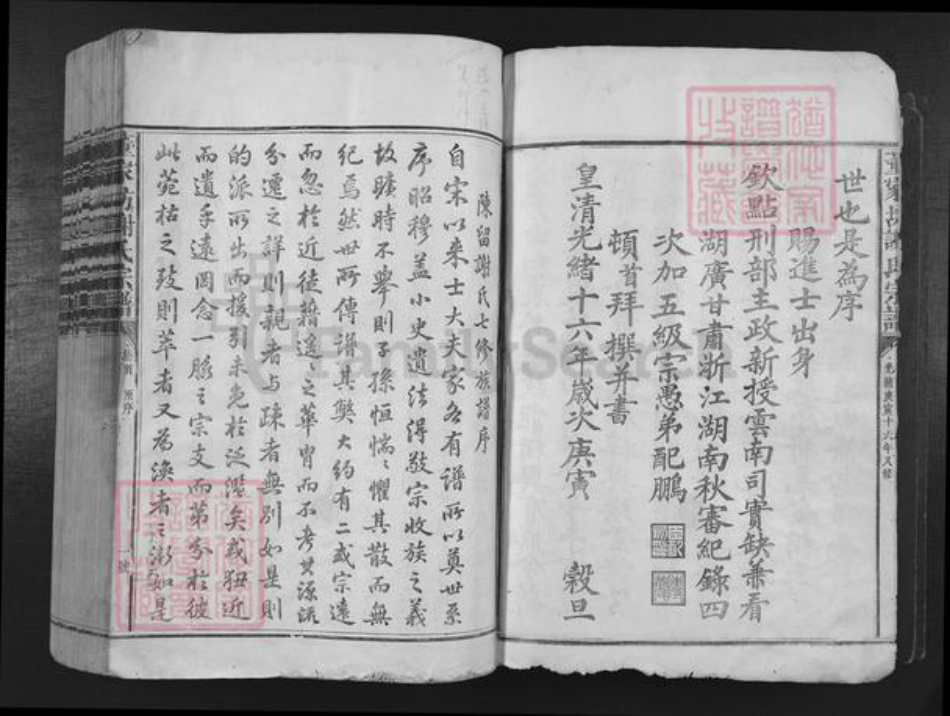 世也是為序
賜進士出身
欽點刑部主政新授雲南司實缺兼看
湖廣甘肅浙江湖南秋審紀錄四
次加五級宗愚弟配鵬
頓首拜 撰并書
皇清光緒十六年歲次庚寅 穀旦
陳留謝氏七修族譜序
自宋以來士大夫家各有譜所以奠世系
序昭穆蓋小史遺法得敬宗收族之義
故曠時不舉則子孫恒惴惴懼其散而無
紀焉然世所傳譜其弊大約有二或宗遠
而忽於近徒藉遙遙之華冑而不考其源流
分遷之詳則親者与疎者無別如是則
的派所出而援引未免於泛濫矣或狃近
而遺乎遠罔念一脉之宗支而第分於彼
此菀枯之殊則萃者又為渙者之漸如是
FamilySearch